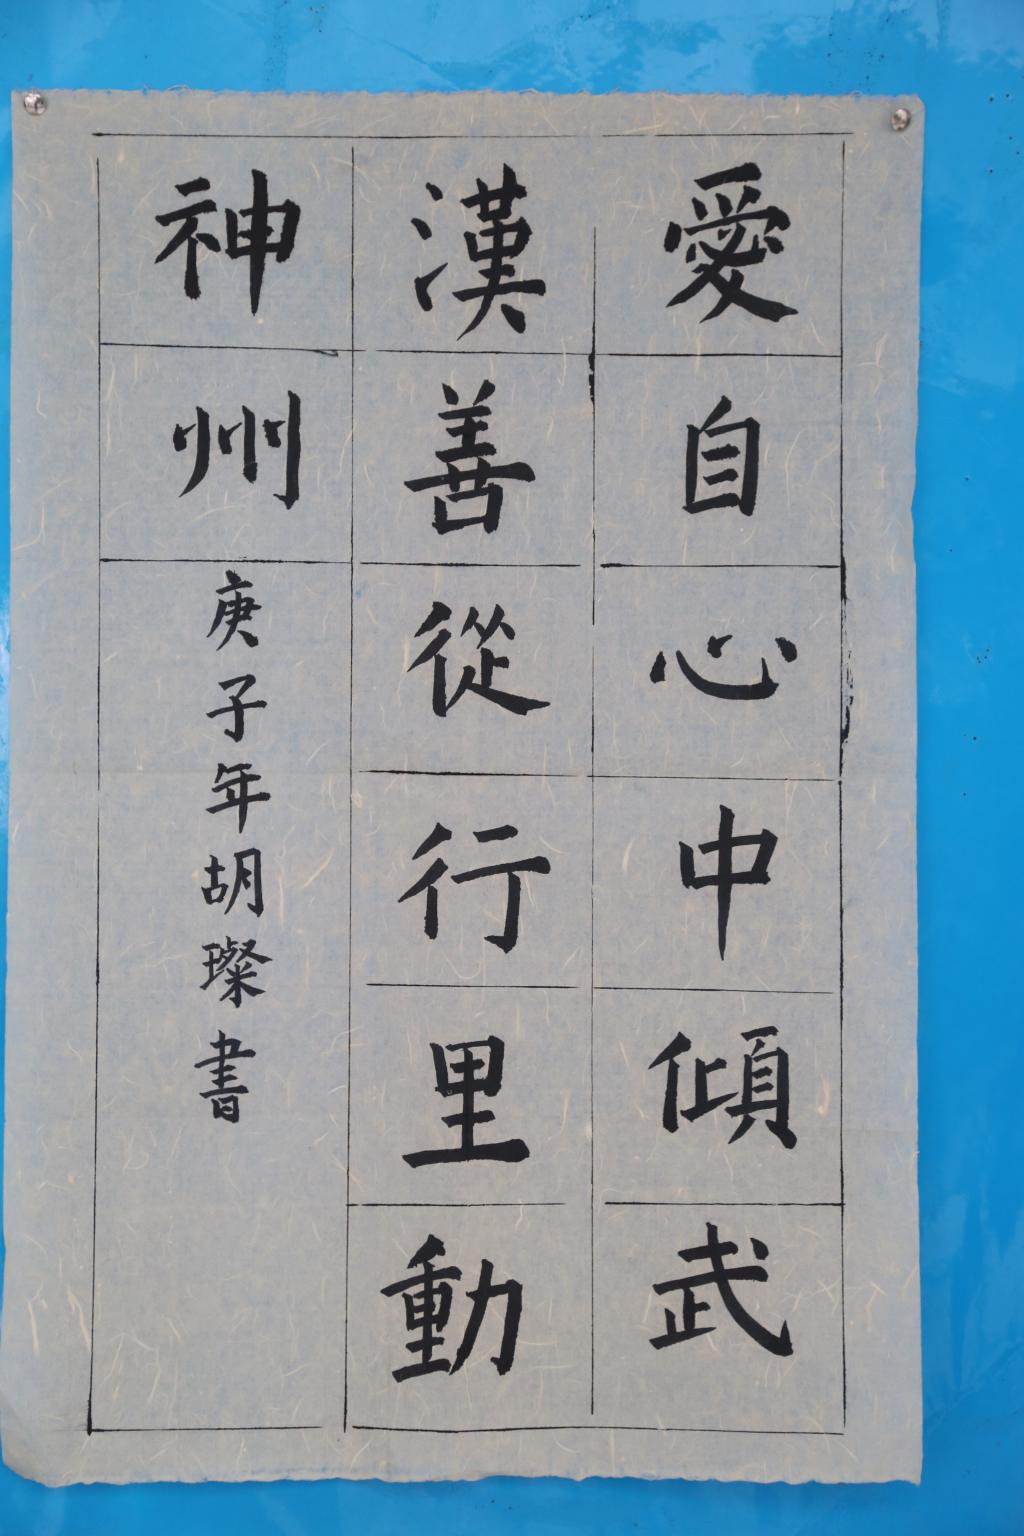 愛自心中傾武
漢善從行里動
神州
庚子年胡璨書